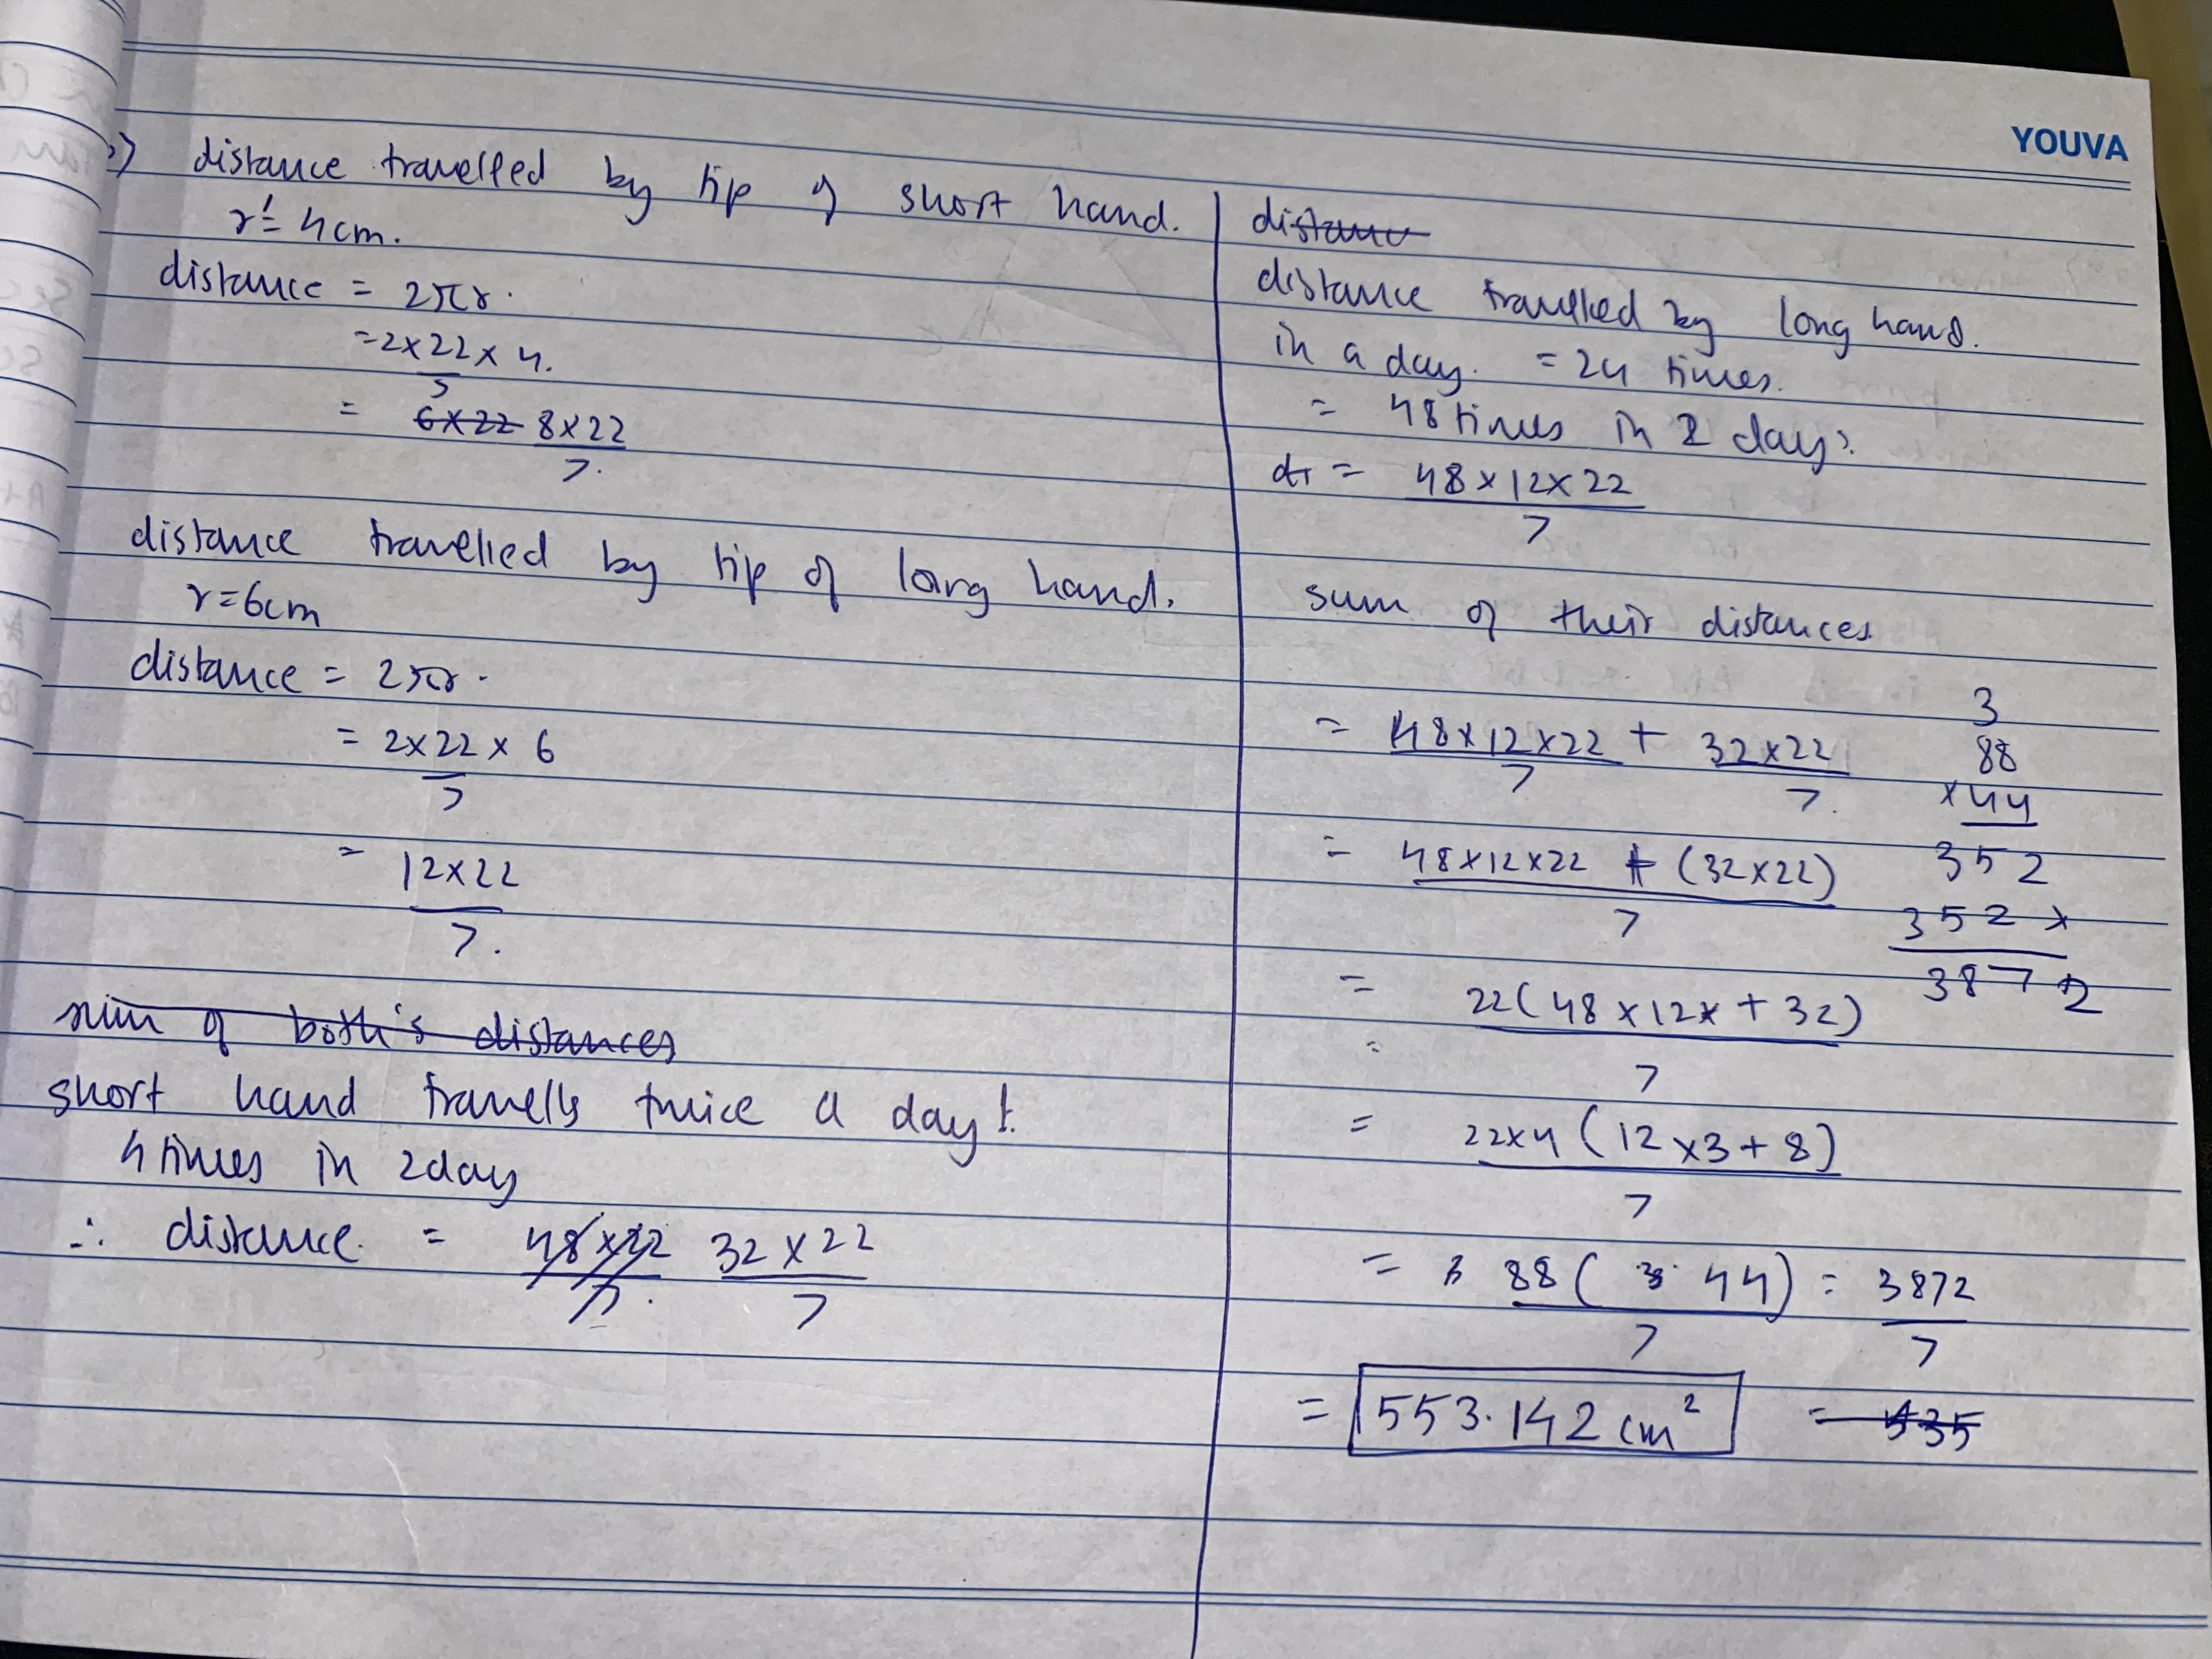 YOUVA
distance travelled by tip of short hand.
r = 4cm.
distance = 2πr.
= 2×22×4.
7
= 6×22 8×22
7.
distance travelled by tip of long hand.
r=6cm
distance = 2πr.
= 2×22×6
7
= 12×22
7.
sum of both's distances
short hand travells twice a day.
4 times in 2day
∴ distance = 48×22 32×22
7. 7
distanc
distance travelled by long hand.
in a day. = 24 times.
= 48 times in 2 days.
dt = 48×12×22
7
sum of their distances
= 48×12×22 + 32×22
7 7.
= 48×12×22 + (32×22)
7
= 22(48×12× + 32)
7
= 22×4(12×3+8)
7
= 88( 44) = 3872
7 7
= 553.142 cm²
= 535
3
88
×44
352
352×
3872